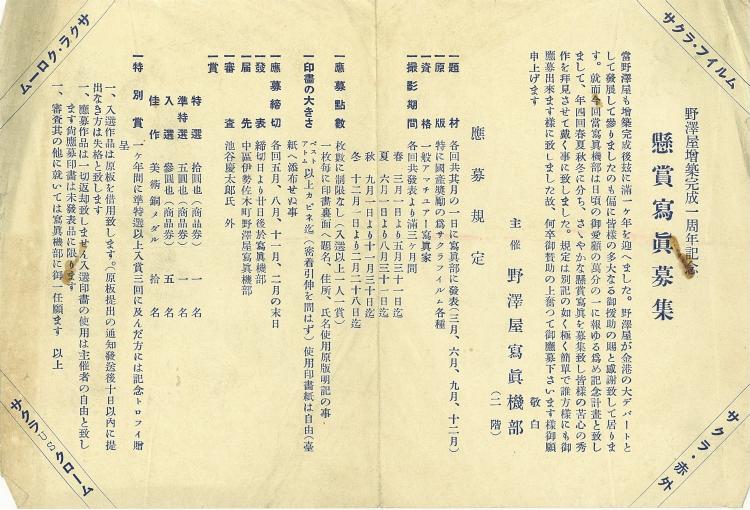 サクラ・フイルム
サクラ・クローム
サクラ・赤外
サクラUSクローム
野澤屋増築完成一周年記念
懸賞寫眞募集
當野澤屋も増築完成後玆に滿一ケ年を迎へました。野澤屋が金港の大デパートと
して發展して參りましたのも偏に皆様の多大なる御援助の賜と感謝致して居りま
す。就而今回當寫眞機部は日頃の御愛顧の萬分の一に報ゆる爲め記念計畫と致し
まして、年四回春夏秋冬に分ち、さゝやかな懸賞寫眞を募集致し皆様の苦心の秀
作を拜見させて戴く事に致しました。規定は別記の如く極く簡單で誰方様にも御
應募出來ます様に致しました故、何卒御賛助の上奮つて御應募下さいます様御願
申上げます
敬白
主催 野澤屋寫眞機部
(二階)
應募規定
一題材 各回共其月の一日に寫眞部に發表(三月、六月、九月、十二月)
一原版 特に國產獎勵の爲サクラフイルム各種
一資格 一般アマチユアー寫眞家
一撮影期間 各回共發表より滿三ケ月間
春 三月一日より五月三十一日迄
夏 六月一日より八月三十一日迄
秋 九月一日より十一月三十日迄
冬 十二月一日より二月二十八日迄
一應募點數 枚數に制限なし(入選以上一人一賞)
一枚每に印畫裏面へ題名、住所、氏名使用原版明記の事
一印畫の大きさ ベストアトム以上カビネ迄(密着引伸を問はず)使用印畫紙は自由(臺
紙へ添布せぬ事
一應募締切 各回五月、八月、十一月、二月の末日
一發表 締切日より廿日後於寫眞機部
一届先 中區伊勢佐木町野澤屋寫眞機部
一審査 池谷慶太郎氏 外
一賞
特選 拾圓也(商品券) 一名
準特選 五圓也(商品券) 一名
入選 參圓也(商品券) 五名
佳作 美術銅メダル 拾名
一特別賞 一ケ年間に準特選以上入賞三回に及んだ方には記念トロフイ贈
呈
一、入選作品は原板を借用致します。(原板提出の通知發送後十日以內に提
出なき方は失格と致します
一、應募作品は一切返却致しません入選印畫の使用は主催者の自由と致し
ます尙應募印畫は未發表品に限ります
一、審査其の他に就いては寫眞機部に御一任願ます 以上